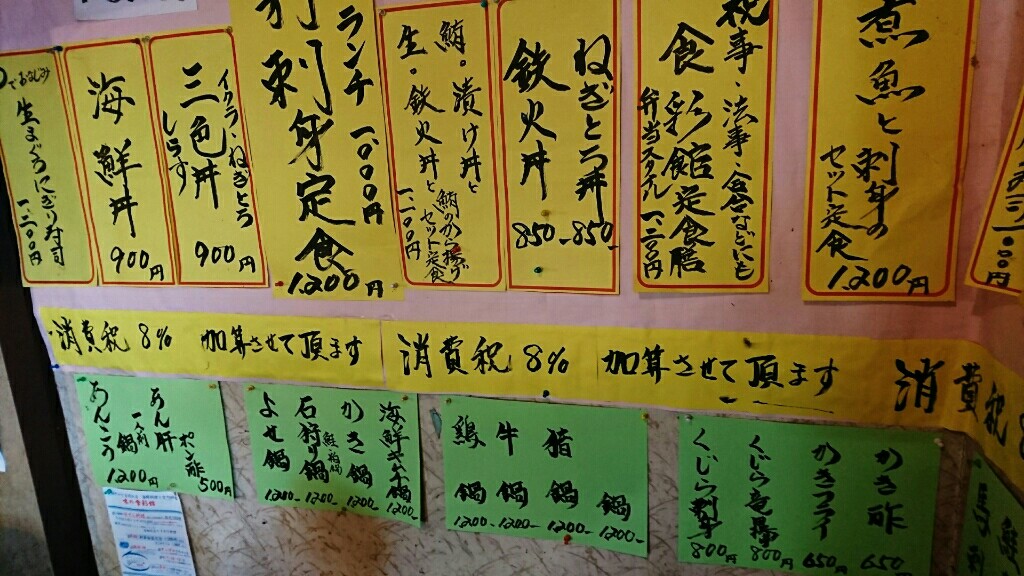 煮魚と刺身の
セット定食
1,200円
祝事・法事・会合などにも
食彩館定食膳
弁当スタイル 1,200円
ねぎとろ丼
850-
鉄火丼
850-
鮪・漬け丼と
生・鉄火丼と
鮪のから揚げ
セット定食
1,100円
ランチ
1,000円
刺身定食
1,200円
イクラ・ねぎとろ
三色丼
しらす
900円
海鮮丼
900円
生まぐろにぎり寿司
1,200円
消費税 8% 加算させて頂ます
消費税 8% 加算させて頂ます
消費税
かき酢
650-
かきフライ
650円
くじら竜田揚
800円
くじら刺身
800円
猪鍋
1200-
牛鍋
1200-
鶏鍋
1200-
鍋
1200-
海鮮キムチ鍋
1200-
かき鍋
1200-
石狩り鍋
1200-
よせ鍋
1200-
あん肝
ポン酢
500円
あんこう
一人前
鍋
1200円